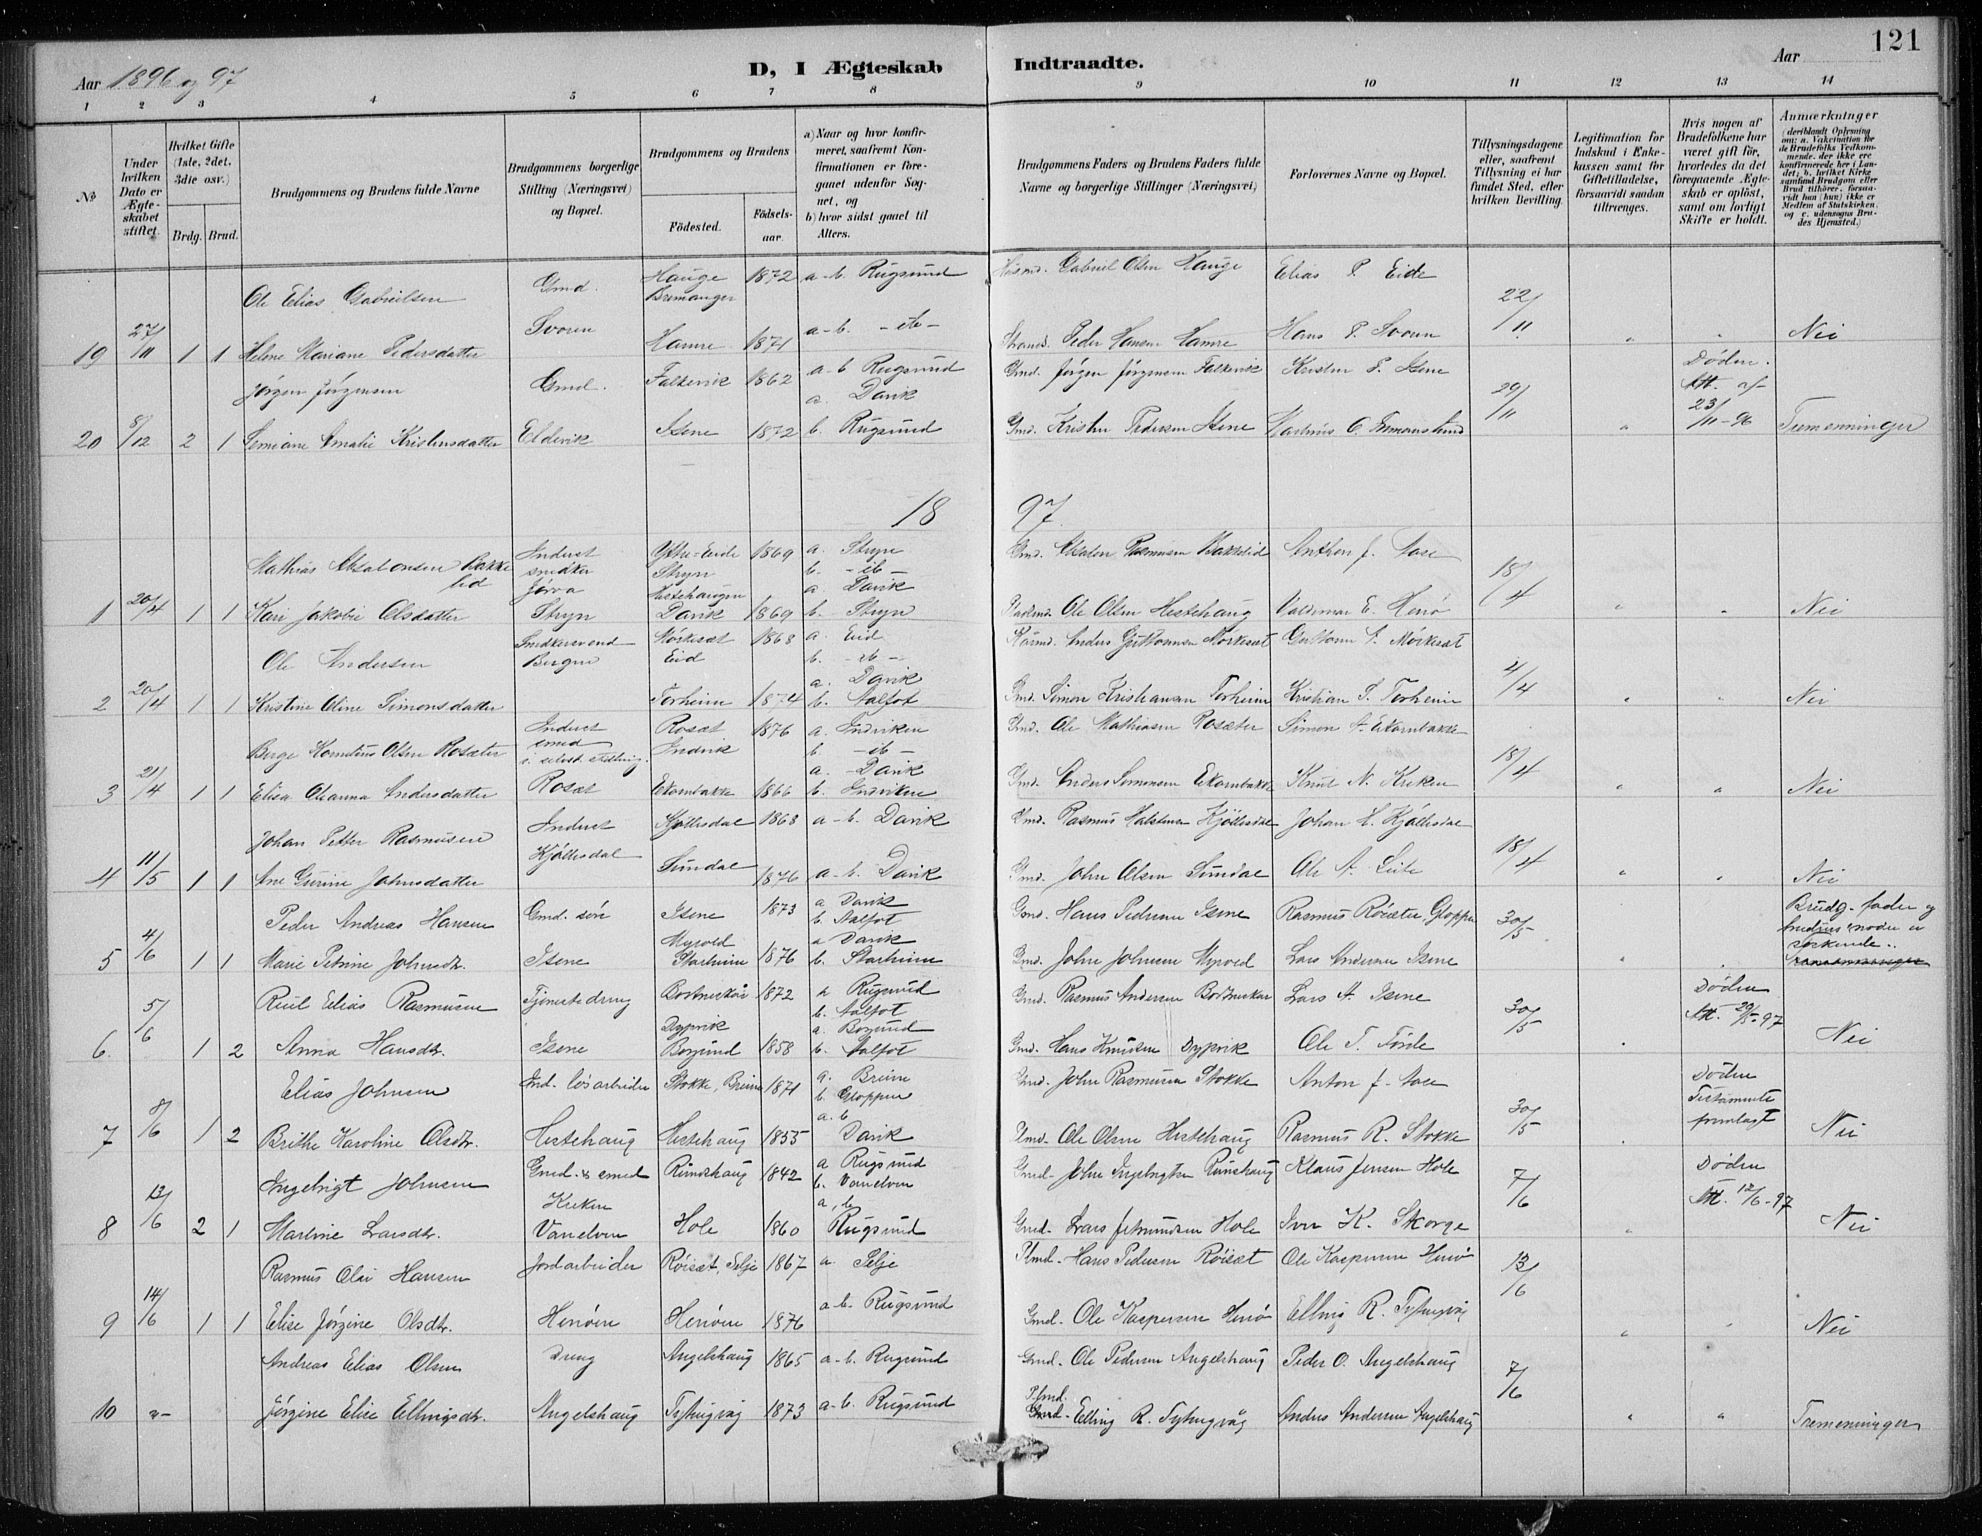 121
Aar 1896 og 97
D, I Ægteskab Indtraadte.
Aar
1 2 3 4 5 6 7 8 9 10 11 12 13 14
No
Under hvilken Dato er Ægteskabet stiftet.
Hvilket Gifte (1ste, 2det, 3die osv.)
Brdg. Brud.
Brudgommens og Brudens fulde Navne
Brudgommens borgerlige Stilling (Næringsvei) og Bopæl.
Brudgommens og Brudens
Födested. Födsels-aar.
a) Naar og hvor konfirmeret, saafremt Konfirmationen er foregaaet udenfor Sognet, og
b) hvor sidst gaaet til Alters.
Brudgommens Faders og Brudens Faders fulde Navne og borgerlige Stillinger (Næringsvei)
Forlovernes Navne og Bopæl.
Tillysningsdagene eller, saafremt Tillysning ei har fundet Sted, efter hvilken Bevilling.
Legitimation for Indskud i Enkekassen samt for Giftetilladelse, forsaavidt saadan tiltrænges.
Hvis nogen af Brudefolkene har været gift för, hvorledes da det foregaaende Ægteskab er oplöst, samt om lovligt Skifte er holdt.
Anmærkninger
(deriblandt Oplysning om: a. Vakcination for de Brudefolks Vedkommende, der ikke ere konfirmerede her i Landet; b. hvilket Kirkesamfund Brudgom eller Brud tilhörer, forsaavidt han (hun) ikke er Medlem af Statskirken, og c. udensogns Brudes Hjemsted.)
Ole Elias Gabrielsen Gmd. Hauge Bremanger 1872 a-b. Rugsund Husmd. Gabriel Olsen Hauge Elias P. Eide 22/11
19 27/11 1 1 Helene Mariane Pedersdatter Svoren Hamre 1871 a-b. -ib- Strands. Peder Hansen Hamre Hans P. Svoren " " Nei
Jørgen Jørgensen Gmd. Falkevik 1862 a-b Rugsund Gmd. Jørgen Jørgensen Falkevik Kersten P. Isene 29/11 Døden. Att. af
20 8/12 2 1 Semiane Amalie Kristensdatter Eldevik Isene 1872 a. Davik b. Rugsund Gmd. Kristen Pedersen Isene Martinus O. " 23/11-96 Tremenninger
18 97.
Mathias Absalonsen Bakkelid Inderst snedker Jørva Ytre-Eide Stryn 1869 a. Stryn b. -ib- Gmd. Absalon Rasmusen Bakkelid Anthon J. Aase 18/4
1 20/4 1 1 Kari Jakobie Olsdatter Stryn Hestehaugen Davik 1869 a Davik b. Stryn Pladsmd. Ole Olsen Hestehaug Valdemar E. Henø " " Nei
Ole Andersen Snedkersvend Bergen Mørkesæt Eid 1868 a. Eid b. -ib- Kaarmd. Anders Guttormsen Mørkesæt Guttorm A. Mørkesæt 4/4
2 20/4 1 1 Kristine Oline Simonsdatter Torheim 1874 a. Davik b. Aalfot Gmd. Simon Kristiansen Torheim Kristian S. Torheim " " Nei
Berge Kornelius Olsen Rosæter Inderst smed i selvst. Stilling. Rosæt Indvik 1876 a. Indviken b. -ib- Gmd. Ole Mathiasen Rosæter Simon A. Ekornbakke 18/4
3 21/4 1 1 Elisa Olianna Andersdatter Rosæt Ekornbakke 1866 a. Davik b. Indviken Gmd. Anders Simonsen Ekornbakke Knut N. Kirken " " Nei
Johan Petter Rasmusen Inderst Kjøllesdal 1868 a-b. Davik Gmd. Rasmus Halstensen Kjøllesdal Johan H. Kjøllesdal 18/4
4 11/5 1 1 Ane Gurine Johnsdatter Kjøllesdal Sundal 1876 a-b. Davik Gmd. John Olsen Sundal Ole A. Leite " " Nei
Peder Andreas Hansen Gmd. søn Isene 1873 a Davik b. Aalfot Gmd. Hans Pedersen Isene Rasmus Røisæter, Gloppen 30/5 Brudg. fader og brudens moder er søskende.
5 4/6 1 1 Marie Petrine Johnsdtr. Isene Myrvold Starheim 1876 a Davik b. Starheim Gmd. John Johnsen Myrvold Lars Andersen Isene " "
Elias Rasmusen Tjenestedreng Bortneskar 1872 a Rugsund b. Aalfot Gmd. Rasmus Andersen Bortneskar Lars A. Isene 30/5 Døden Att. 29/5-97
6. 5/6 1 2 Anna Hansdtr. Isene Dypvik Borgund 1858 a. Borgund b. Aalfot Gmd. Hans Knudsen Dypvik Ole T. Førde Nei
Elias Johnsen Ind. løsarbeider Stokke, Breim 1871 a. Breim b. Gloppen Gmd. John Rasmusen Stokke Anton J. Aase 30/5 Døden Testamente fremlagt
7 8/6 1 2 Brithe Karoline Olsdtr. Hestehaug Hestehaug 1855 a. b Davik Plmd. Ole Olsen Hestehaug Rasmus R. Stokke Nei
Ingebrigt Johnsen Gmd. & smed Rundshaug 1842 a Rugsund b. Vanelven Gmd. John Ingebrigtsen Rundshaug Klaus Jensen Hole 7/6 Døden Att. 12/6-97
8 13/6 2 1 Martine Larsdtr. Kirken Vanelven Hole 1860 a, b, Rugsund Gmd. Lars Hole Iver K. Skorge " Nei
Rasmus Olai Hansen Jordarbeider Røisæt, Selje 1867 a. Selje Plmd. Hans Pedersen Røisæt Ole Kaspersen Henø 13/6
9 14/6 1 1 Elise Jørgine Olsdtr. Henøen Henøen 1876 a-b. Rugsund Gmd. Ole Kaspersen Henø Elling R. Tytingvåg " " Nei
Andreas Elias Olsen Dreng Angelshaug 1865 a-b. Rugsund Gmd. Ole Pedersen Angelshaug Peder O. Angelshaug 7/6
10 " - Jørgine Elise Ellingsdtr. Angelshaug Tytingvåg 1873 a-b. Rugsund Plmd. Elling R. Tytingvåg Anders Andersen Angelshaug " " Tremenninger